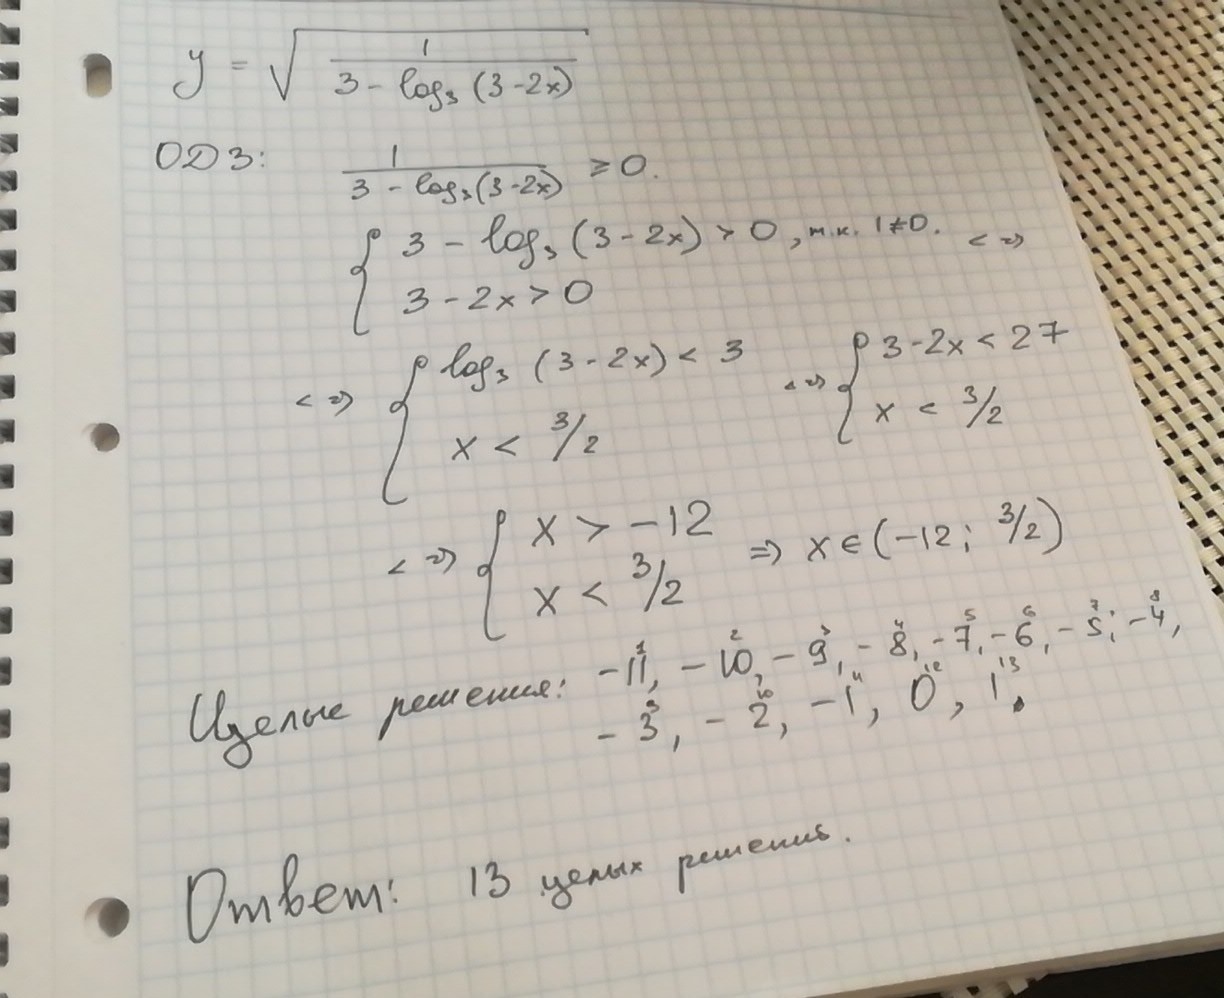 y = √(1 / (3 - log₃ (3-2x)))
ОДЗ: 1 / (3 - log₃(3-2x)) ≥ 0.
{ 3 - log₃ (3-2x) > 0, т.к. 1≠0. <=>
3 - 2x > 0
<=> { log₃ (3-2x) < 3 <=> { 3-2x < 27
x < 3/2 x < 3/2
<=> { x > -12 => x ∈ (-12; 3/2)
x < 3/2
1 2 3 4 5 6 7 8
Целые решения: -11, -10, -9, -8, -7, -6, -5, -4,
9 10 11 12 13
-3, -2, -1, 0, 1.
Ответ: 13 целых решений.